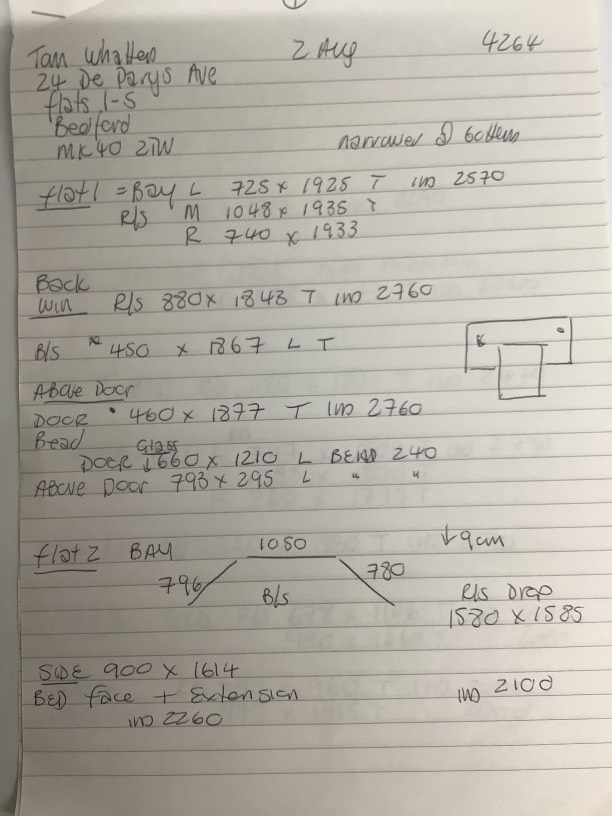 1
Tam Whatten 2 Aug 4264
24 De Parys Ave
flats 1-5
Bedford
MK40 2TW narrower @ bottem
flat 1 = BAY L 725 x 1925 T 2570
R/s M 1048 x 1935 T
R 740 x 1933
Back
Win R/s 880 x 1843 T 2760
B/s 450 x 1867 L T
Above Door
Door 460 x 1877 T 2760
Bead
Glass
Door ↓ 660 x 1210 L BEAD 240
Above Door 793 x 295 L " "
flat 2 BAY 1050 ↓ 9cm
796 780
B/s R/s Drop
1580 x 1585
SIDE 900 x 1614
BED face + Extension 2100
2260